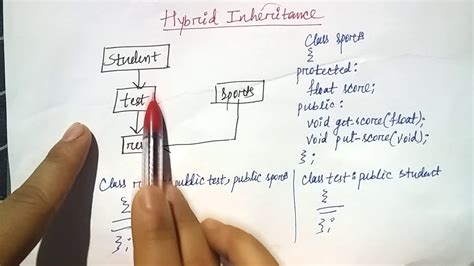 Hybrid Inheritance
Student
test
sports
re
Class sports
{
protected:
float score;
public:
void get-score(float);
void put-score(void);
};
Class r public test, public sports
{
};
Class test: public student
{
};